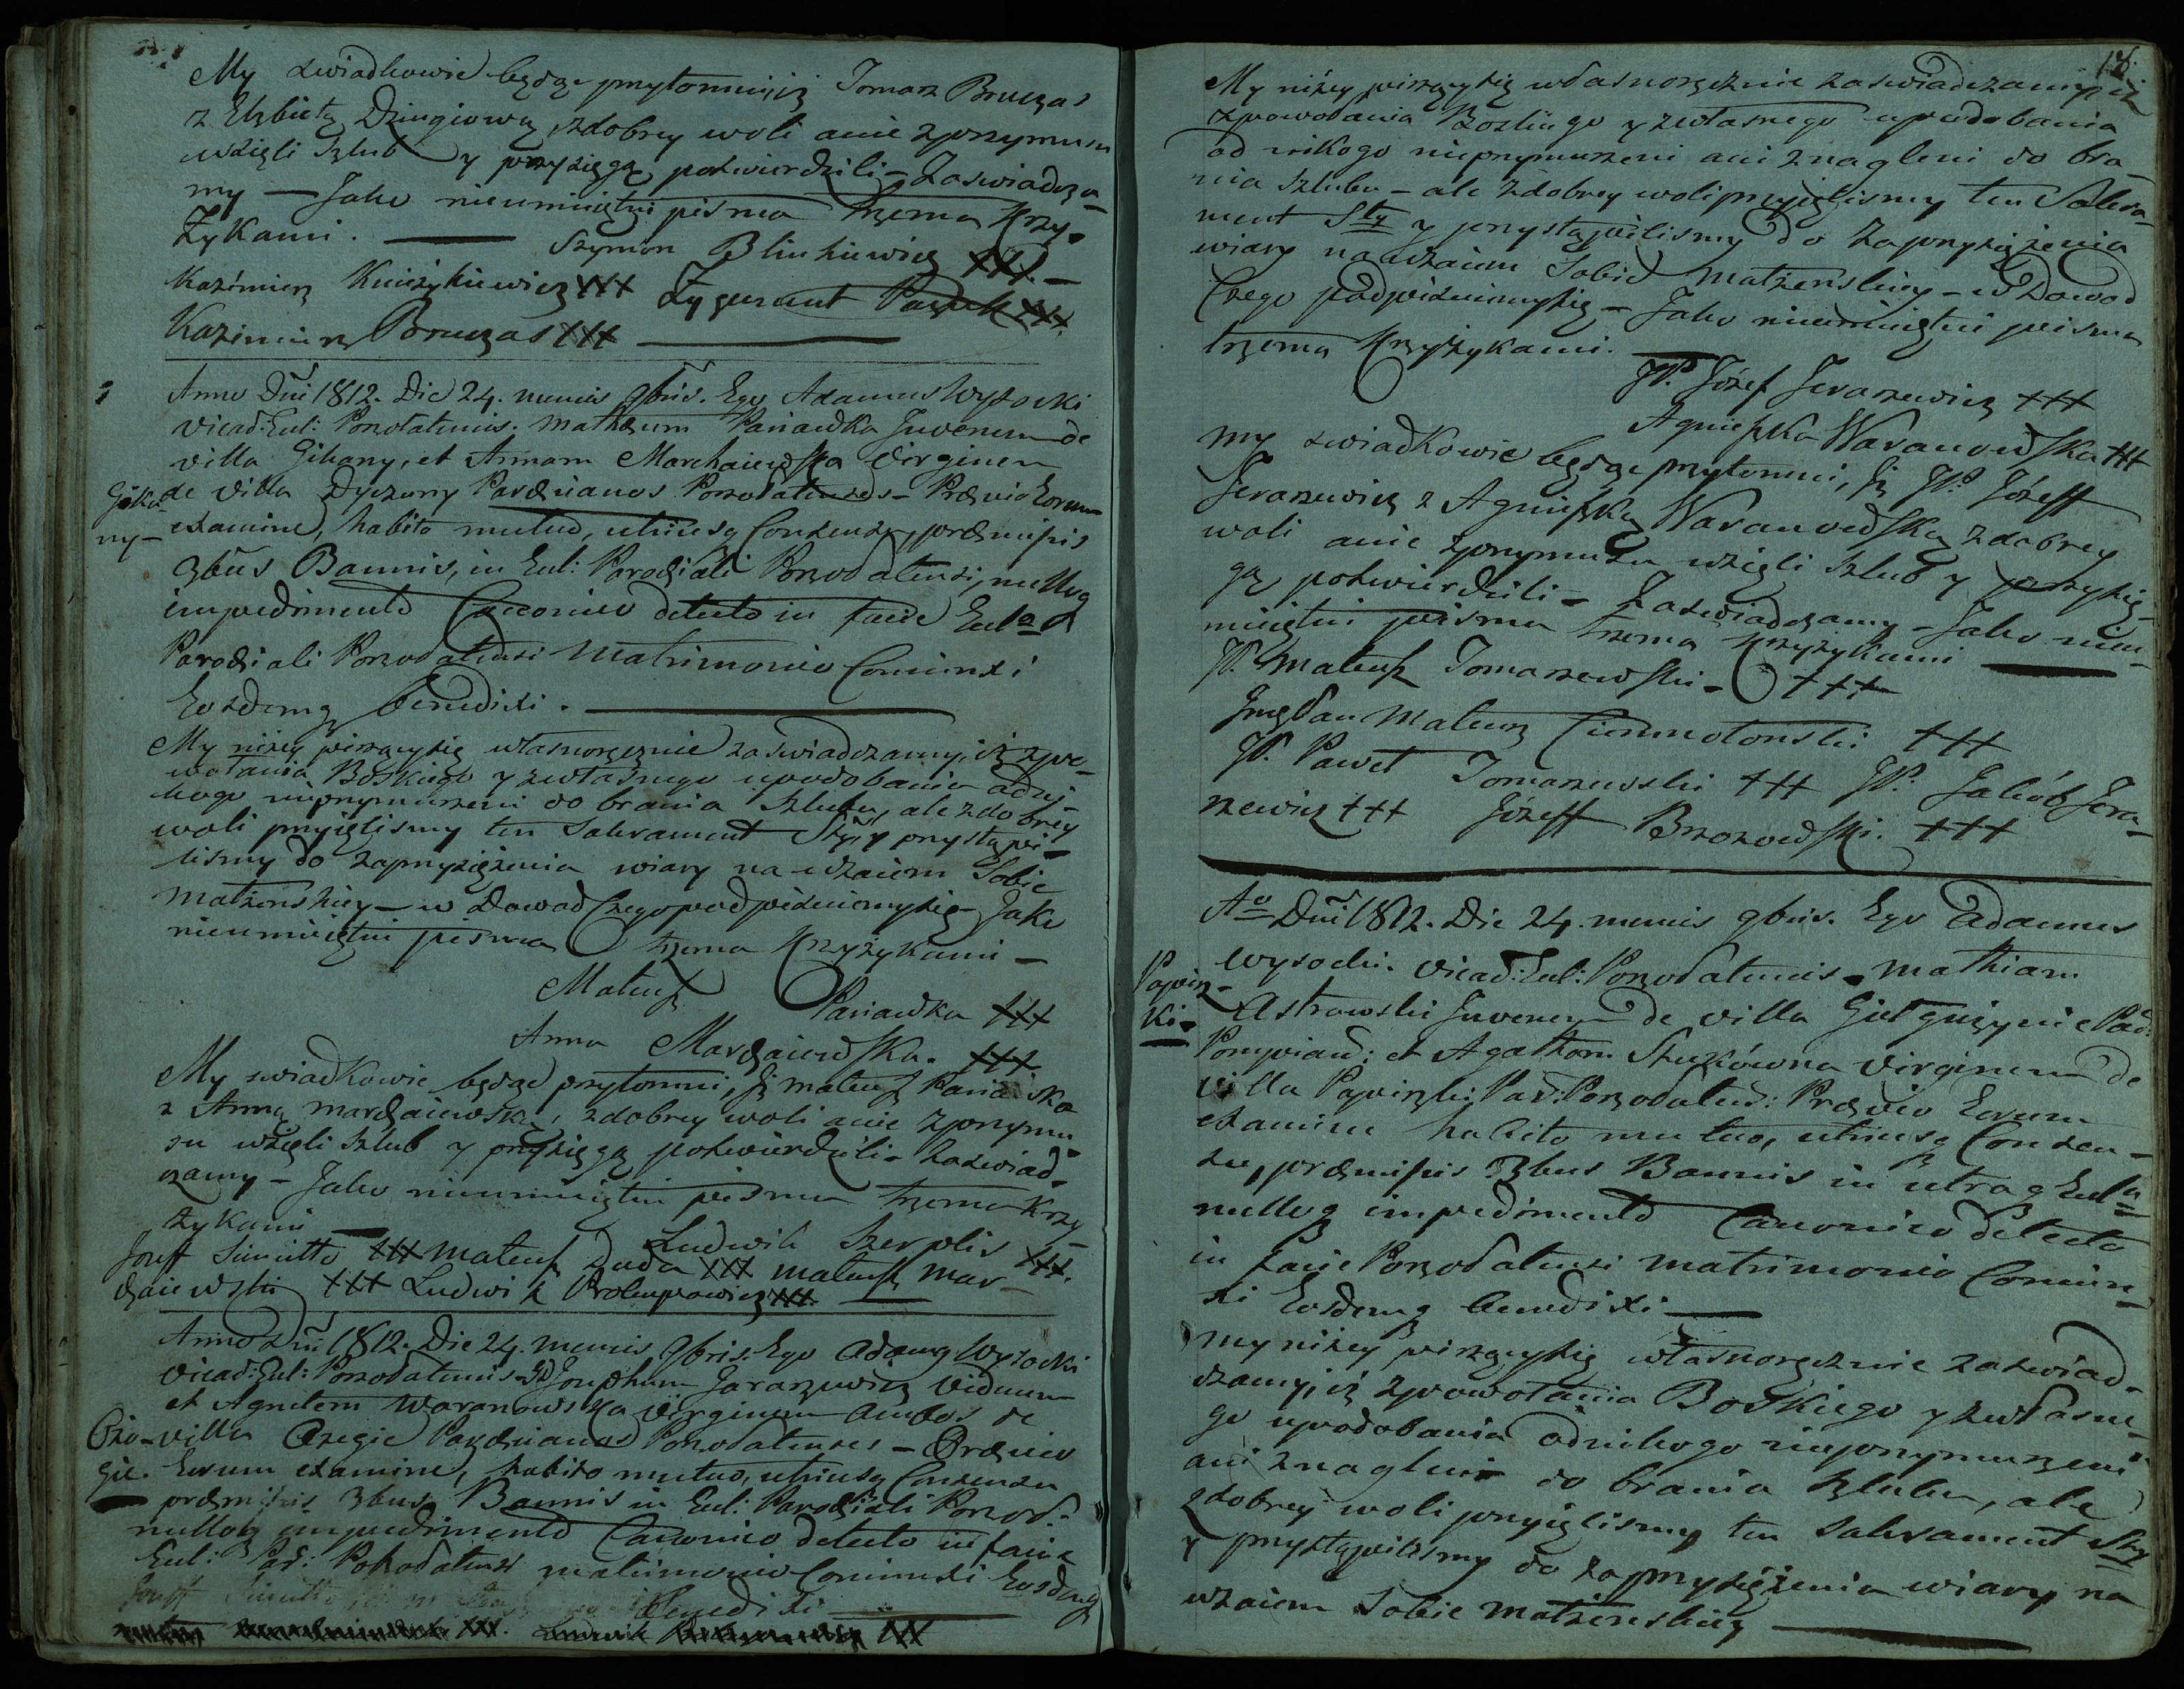 My swiadkowie będąc przytomni, iż Tomasz Bruczas
z Elżbietą Dziugiową, zdobrey woli anie zprzymusu
wzięli Szlub y przysięgą potwierdzili – Zaswiadcza-
my – Jako nieumiiętni pisma trzema Krzy-
żykami. Szymon Blinkiewicz +++ –
Kazimierz Kniżykiewicz +++ Zygmunt +++
Kazimierz Bruczas +++
Anno Dni 1812. Die 24. mensis 9bris. Ego Adamus Wysocki
Vicad: Eccl: Poszołatensis. Mathæum Paniawka Juvenem de
villa Gikany, et Annam Marchaiewska Virginem
Gika- de Villa Dyrzony Paræcianos Poszołatenses – Prævio Eorum
ny – examine, habito mutuo, utriusq Consensu, præmissis
3bus Bannis, in Eccl: Paræciali Poszołatensi, nulloq
impedimento Canonico detecto in facie Eccla
Paræciali Poszołatensi Matrimonio Coniunxi
Eosdemq benedixi.
My niżey piszącysię własnoręcznie zaswiadczamy, iż zpo-
wołania Boskiego y zwłasnego upodobania odni-
kogo nieprzymuszeni do brania Szlubu, ale zdobrey
woli przyięlismy ten Sakrament Sty, y przystąpi-
lismy do zaprzysiężenia wiary na wzaiem Sobie
Małżenskiey – w Dowod Czego podpisuiemysię – Jako
nieumiiętni pisma trzema Krzyżykami –
Mateusz Paniawka +++
Anna Marchaiewska. +++
My swiadkowie będąc przytomni, Jż Mateusz Paniawka
z Anną Marchaiewską, zdobrey woli anie zprzymu-
su wzięli Szlub y przysięgą potwierdzili – Zaswiad-
czamy – Jako nieumiiętni pisma trzema Krzy-
żykami – Ludwik Szerplis +++.
Jozeff Simutto +++ Mateusz Duda +++ Mateusz Mar-
chaiewski +++ Ludwik Prokupowicz +++.
Anno Dni 1812. Die 24. mensis 9bris. Ego Adamus Wysocki
Vicad: Eccl: Poszołatensis GD Josephum Jaraszewicz Viduum
et Agnetem Waranowska Virginem ambos de
Ożo- villa Ożegie Paræcianos Poszołatenses – Prævio
gie. Eorum examine, habito mutuo, utriusq Consensu
præmissis 3bus Bannis in Eccl: Paræciali Poszoł:
nulloq impedimento Canonico detecto in facie
Eccl: Par: Poszołatensi matrimonio Coniunxi Eosdemq
Benedixi
My niżey piszącysię własnoręcznie zaswiadczamy, iż
zpowołania Boskiego y zwłasnego upodobania
od nikogo nieprzymuszeni ani znagleni do bra-
nia Szlubu – ale zdobrey woli przyięlismy ten Sakra-
ment Sty y przystąpilismy do Zaprzysiężenia
wiary nawzaiem Sobie Małżenskiey – w Dowod
Czego podpisuiemysię – Jako nieumiiętni pisma
trzema Krzyżykami.
JP. Józef Jeraszewicz +++
Agnieszka Waranowska +++
My swiadkowie będąc przytomni, Jż JP. Jozeff
Jeraszewicz z Agnieszką Waranowską zdobrey
woli anie zprzymusu wzięli Szlub y przysię-
gą potwierdzili – Zaswiadczamy – Jako nieu-
miiętni pisma trzema krzyżykami
JP. Mateusz Tomaszewski – +++
Jmę Pan Mateusz Ciemnołonski +++
JP. Paweł Tomaszewski +++ JP. Jakób Jera-
szewicz +++ Józeff Brzozowski. +++
Ao Dni 1812. Die 24. mensis 9bris. Ego Adamus
Wysocki. Vicad: Eccl: Poszołatensis – Mathiam
Papisz-
ki – Astrowski Juvenem de villa Giełgużynie Par:
Pompian: et Agatham Stukówna Virginem de
villa Papiszki Par: Poszołaten: Prævio Eorum
examine habito mutuo, utriusq Consen-
su, præmissis 3bus Bannis in utraq Eccla
nulloq impedimento Canonico detecto
in facie Poszołatensi matrimonio Coniun-
xi Eosdemq Benedixi
My niżey piszącysię własnoręcznie zaswiad-
czamy, iż zpowołania Boskiego y zwłasne-
go upodobania odnikogo nieprzymuszeni
ani znagleni do brania Szlubu, ale
zdobrey woli przyięlismy ten Sakrament Sty
y przystąpilismy do zaprzysiężenia wiary na
wzaiem Sobie małżenskiey